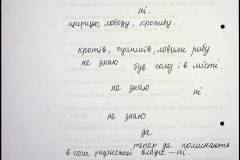 ні.
щирицю, лободу, кропиву.
кротів, сусликів, ловили рибу
не знаю був голод і в місті.
не знаю ні.
не знаю
да
тепер да поминають
в селі радянської влади — ні.